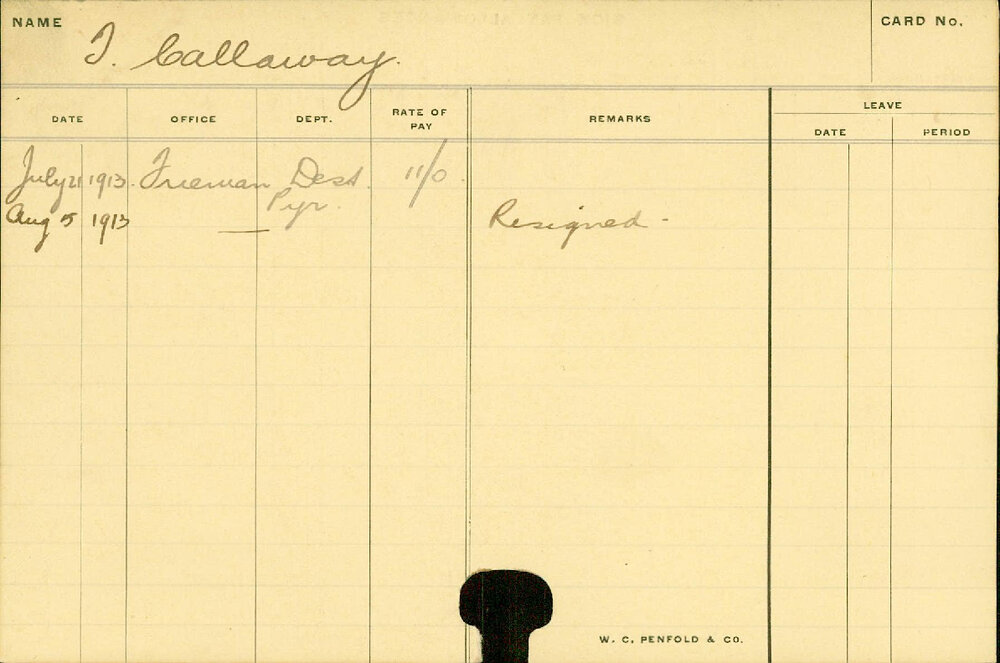 NAME
CARD No.
J. Callaway.
DATE OFFICE DEPT. RATE OF PAY REMARKS LEAVE
DATE PERIOD
July 21 1913. Fireman Dest. 11/0.
Pyr.
Aug 5 1913 — Resigned -
W. C. PENFOLD & CO.